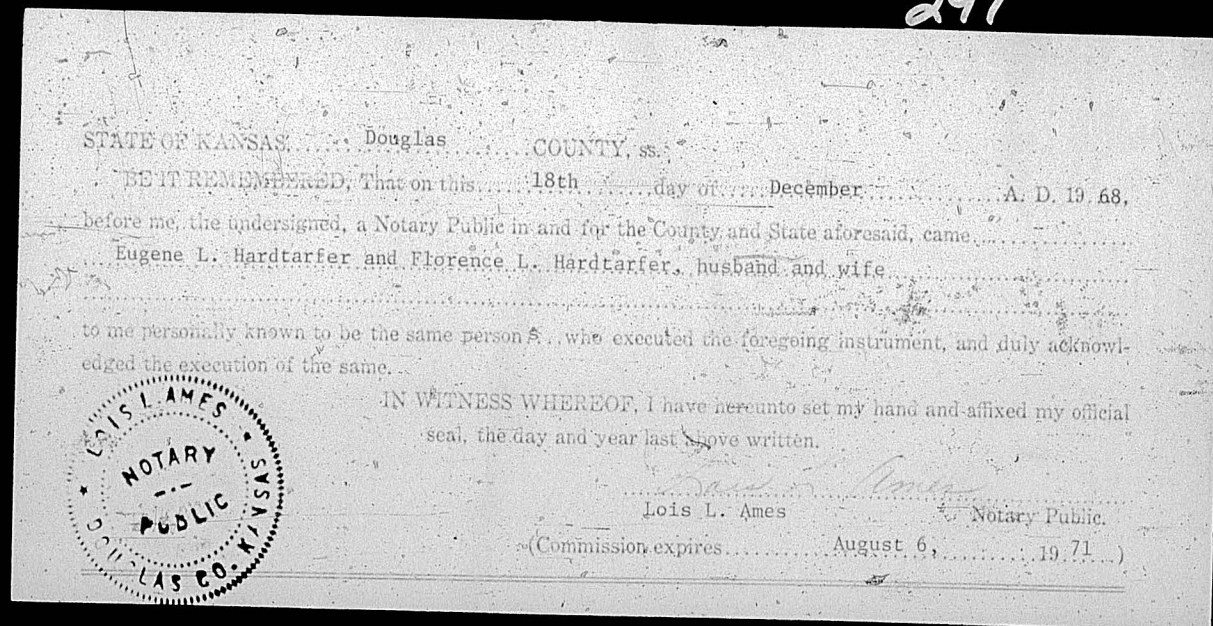 297
STATE OF KANSAS, Douglas COUNTY, ss.
BE IT REMEMBERED, That on this 18th day of December A. D. 19 68,
before me, the undersigned, a Notary Public in and for the County and State aforesaid, came
Eugene L. Hardtarfer and Florence L. Hardtarfer, husband and wife
to me personally known to be the same person s who executed the foregoing instrument, and duly acknowl-
edged the execution of the same.
IN WITNESS WHEREOF, I have hereunto set my hand and affixed my official
seal, the day and year last above written.
Lois L Ames
Lois L. Ames Notary Public.
(Commission expires August 6, 19 71 )
LOIS L. AMES
NOTARY
PUBLIC
DOUGLAS CO. KANSAS